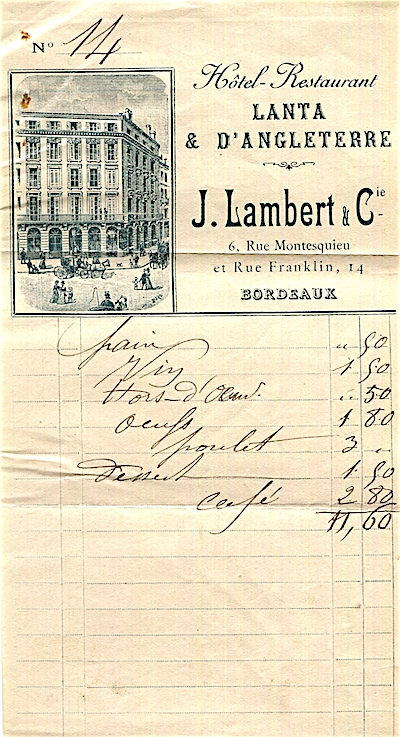 N° 14
Hôtel-Restaurant
LANTA
& D'ANGLETERRE
J. Lambert & Cie
6, Rue Montesquieu
et Rue Franklin, 14
BORDEAUX
pain „ 50
Vin 1 50
Hors-d'Œuv. „ 50
Oeufs 1 80
poulet 3 „
Dessert 1 50
café 2 80
11,60